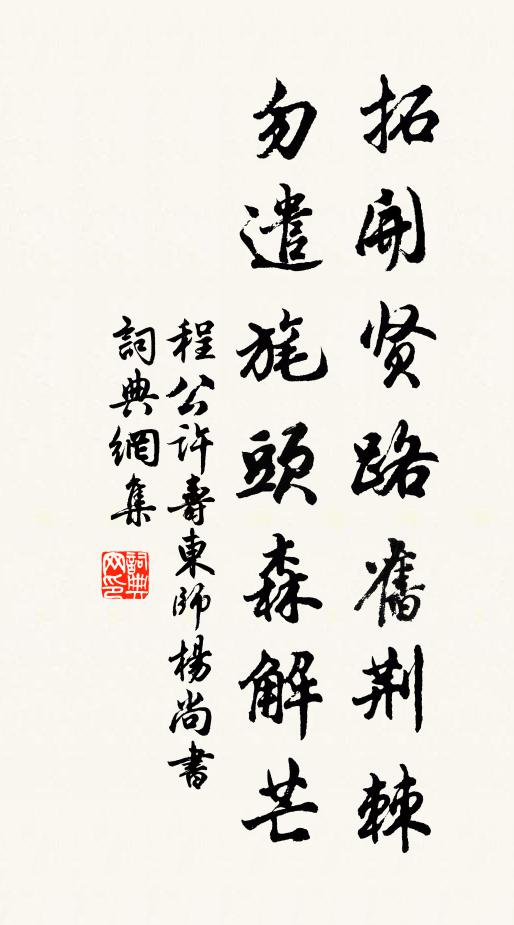 拓開贤路舊荆棘
勿遣旄頭森解芒
程公許壽東師楊尚書
詞典網集
詞典網印